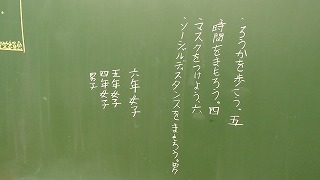 ・ろうかを歩こう、五
時間をまもろう。四
・マスクをつけよう、六
・ソーシャルディスタンスをまもろう。男
六年女子
五年女子
四年女子
男子